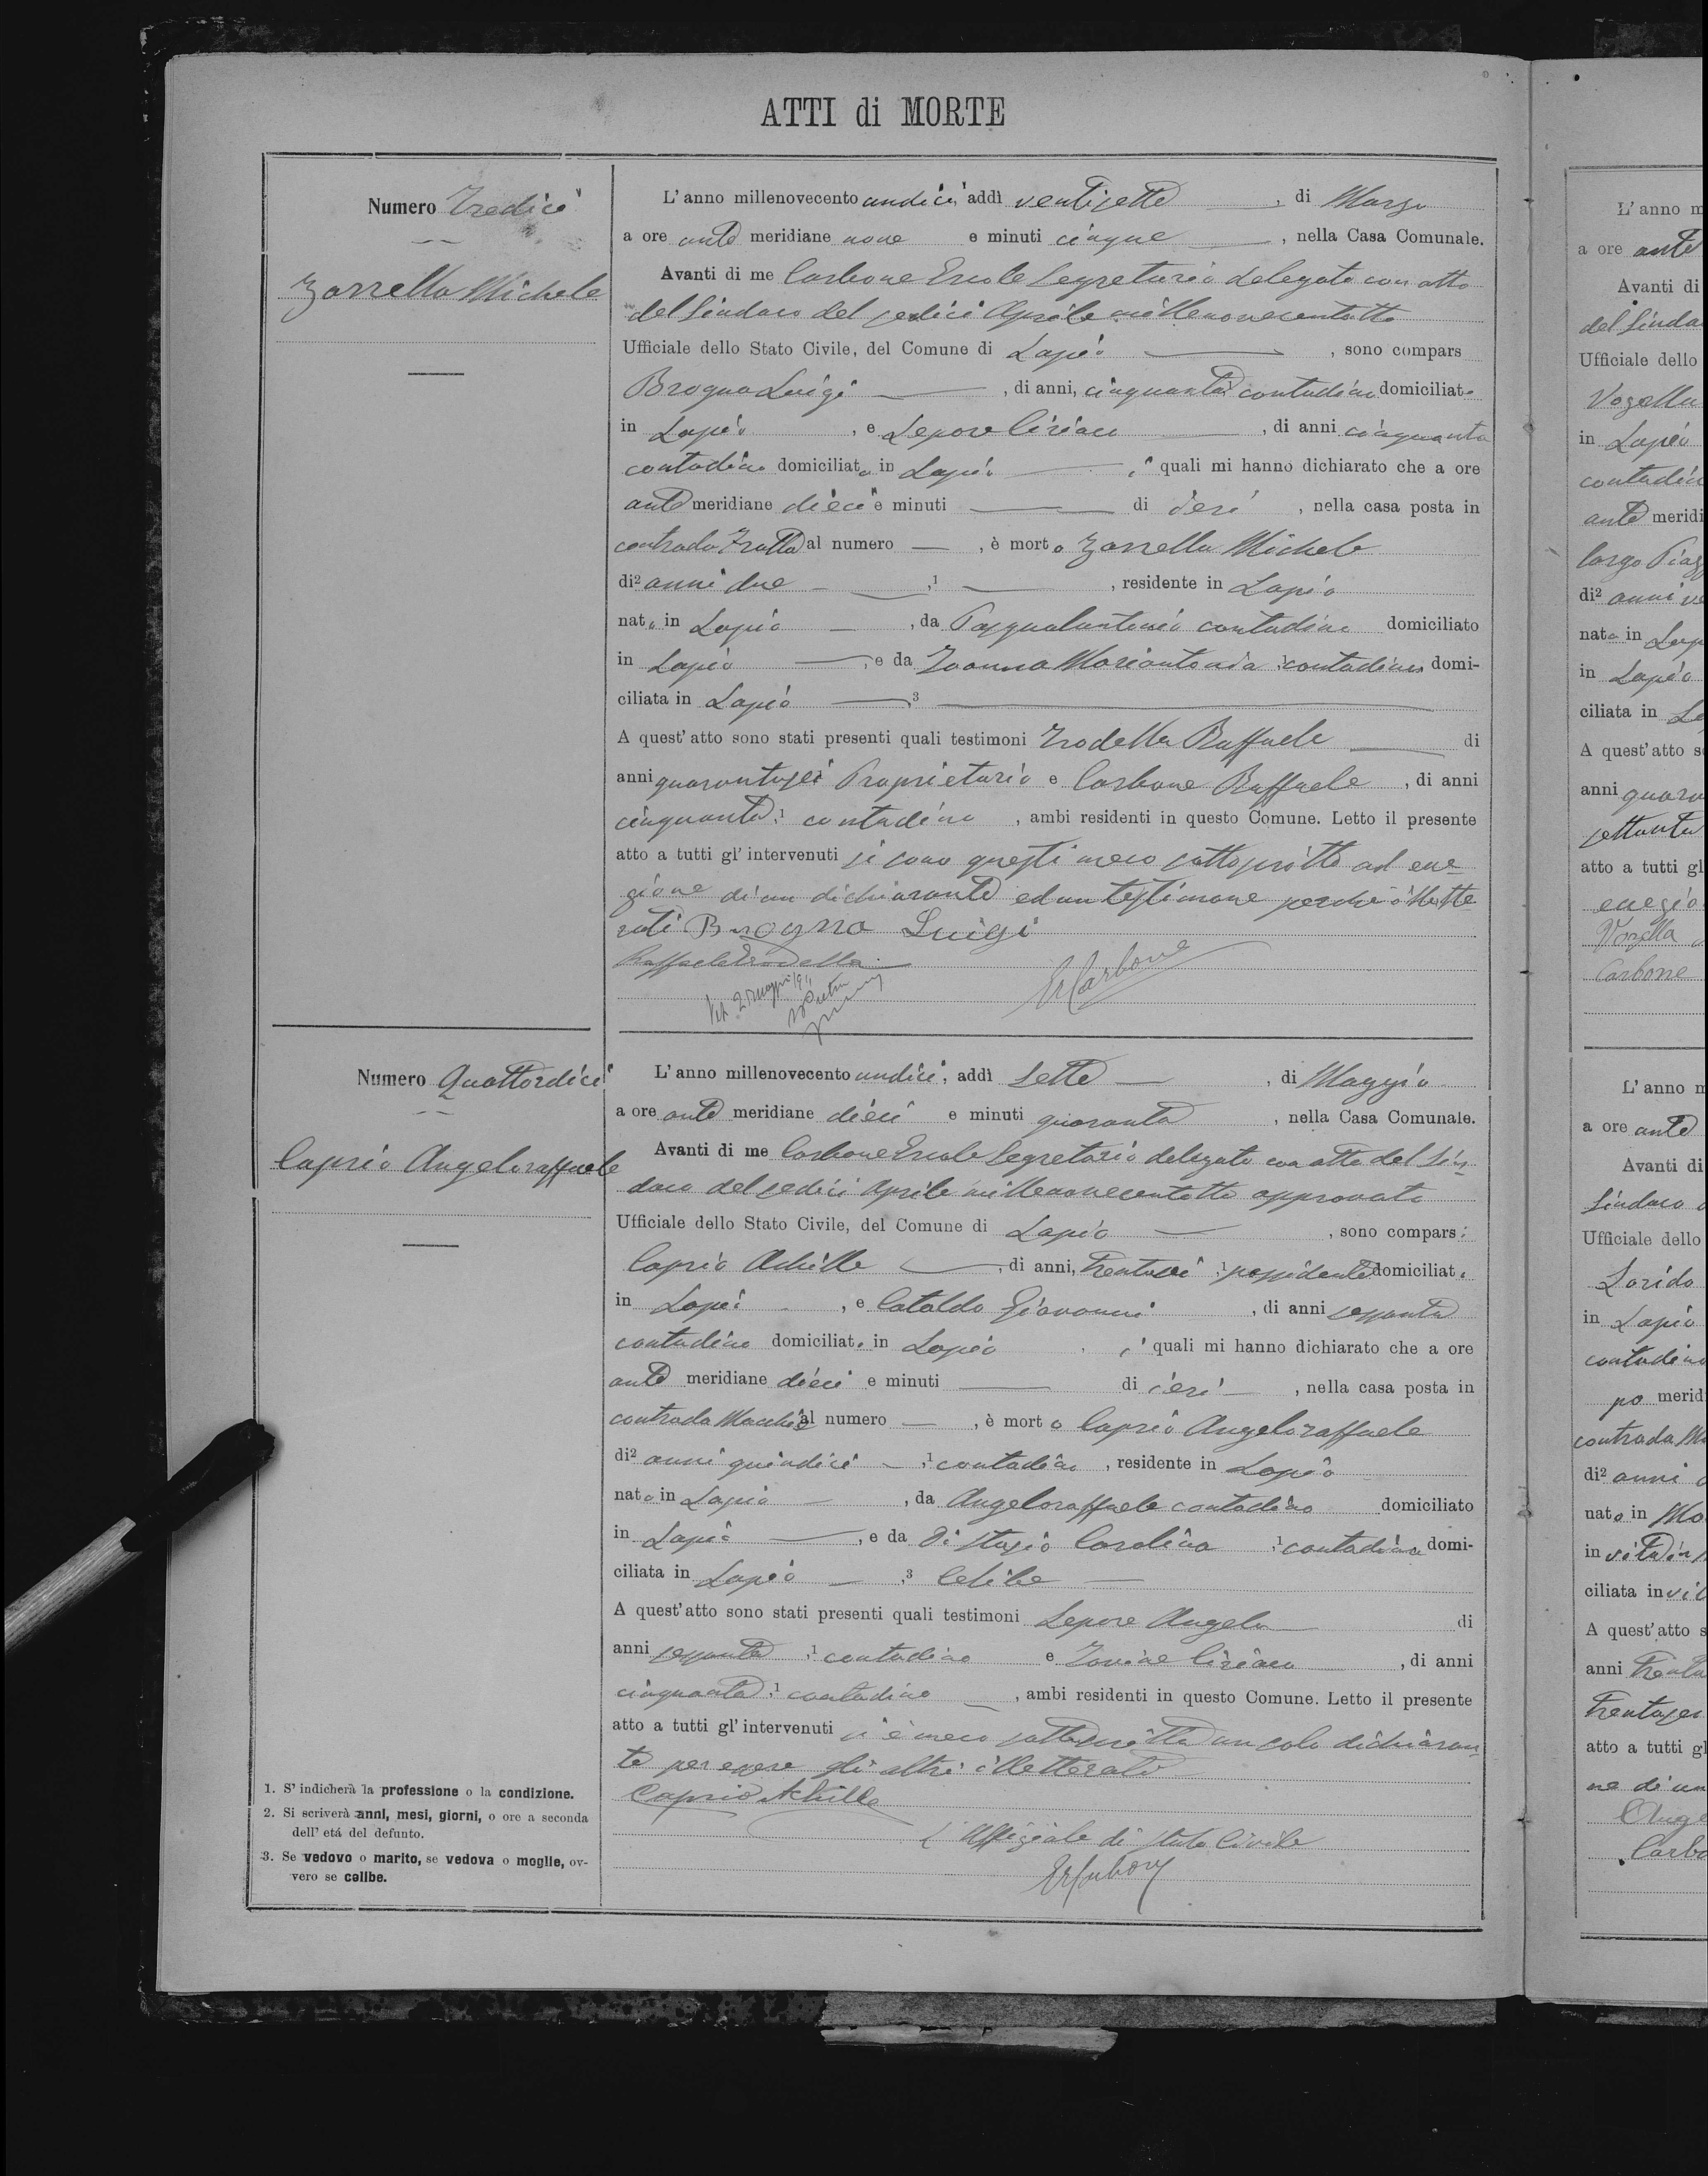 ATTI di MORTE
Numero Tredici
Zarrella Michele
L'anno millenovecento undici, addì ventisette, di Marzo
a ore ante meridiane nove e minuti cinque, nella Casa Comunale.
Avanti di me Carbone Ercole Segretario delegato con atto
del Sindaco del sedici Aprile millenovecentotto
Ufficiale dello Stato Civile, del Comune di Lapio, sono compars
Brogna Luigi, di anni, cinquanta contadino domiciliato
in Lapio, e Lepore Ciriaco, di anni cinquanta
contadino domiciliato in Lapio, i quali mi hanno dichiarato che a ore
ante meridiane dieci e minuti — di ieri, nella casa posta in
contrada Tratta al numero —, è morto Zarrella Michele
di² anni due —,¹ —, residente in Lapio
nato in Lapio —, da Pasqualantonio contadino domiciliato
in Lapio —, e da Ioanna Mariantonia,¹ contadina domi-
ciliata in Lapio —³ —
A quest'atto sono stati presenti quali testimoni Trodella Raffaele di
anni quarantasei Proprietario e Carbone Raffaele, di anni
cinquanta,¹ contadino, ambi residenti in questo Comune. Letto il presente
atto a tutti gl'intervenuti si sono questi meco sottoscritto ad ecce-
zione di un dichiarante ed un testimone perchè illette-
rati Brogna Luigi
Raffaele Trodella
ErCarbone
Numero Quattordici
Caprio Angeloraffaele
L'anno millenovecento undici, addì Sette —, di Maggio
a ore ante meridiane dieci e minuti quaranta, nella Casa Comunale.
Avanti di me Carbone Ercole Segretario delegato con atto del Sin-
daco del sedici Aprile millenovecentotto approvato
Ufficiale dello Stato Civile, del Comune di Lapio —, sono comparsi
Caprio Achille —, di anni, trentasei,¹ possidente domiciliati
in Lapio, e Cataldo Giovanni, di anni sessanta
contadino domiciliat. in Lapio, i quali mi hanno dichiarato che a ore
ante meridiane dieci e minuti — di ieri —, nella casa posta in
contrada Macchie al numero —, è morto Caprio Angeloraffaele
di² anni quindici —,¹ contadino, residente in Lapio
nato in Lapio —, da Angeloraffaele contadino domiciliato
in Lapio —, e da Di Stasio Carolina,¹ contadina domi-
ciliata in Lapio —,³ Celibe —
A quest'atto sono stati presenti quali testimoni Lepore Angelo — di
anni sessanta,¹ contadino e Iovine Ciriaco, di anni
cinquanta,¹ contadino —, ambi residenti in questo Comune. Letto il presente
atto a tutti gl'intervenuti si è meco sottoscritto un solo dichiaran-
te per essere gli altri illetterati
Caprio Achille
l'Uffiziale di Stato Civile
ErCarbone
1. S'indicherà la professione o la condizione.
2. Si scriverà anni, mesi, giorni, o ore a seconda
dell'etá del defunto.
3. Se vedovo o marito, se vedova o moglie, ov-
vero se celibe.
L'anno m
a ore ante
Avanti di
del Sinda
Ufficiale dello
Vozella
in Lapio
contadin
ante meridi
largo Piazz
di² anni ve
nato in Lap
in Lapio
ciliata in La
A quest'atto s
anni quara
settanta
atto a tutti gl
eccezio
Vozella
Carbone
L'anno m
a ore ante
Avanti di
Sindaco
Ufficiale dello
in Lapio
contadino
po merid
contrada Ma
di² anni
nato in Mo
in vita in
ciliata in vit
A quest'atto s
anni trenta
trentasei
atto a tutti gl
ne di un
Ange
Carbo